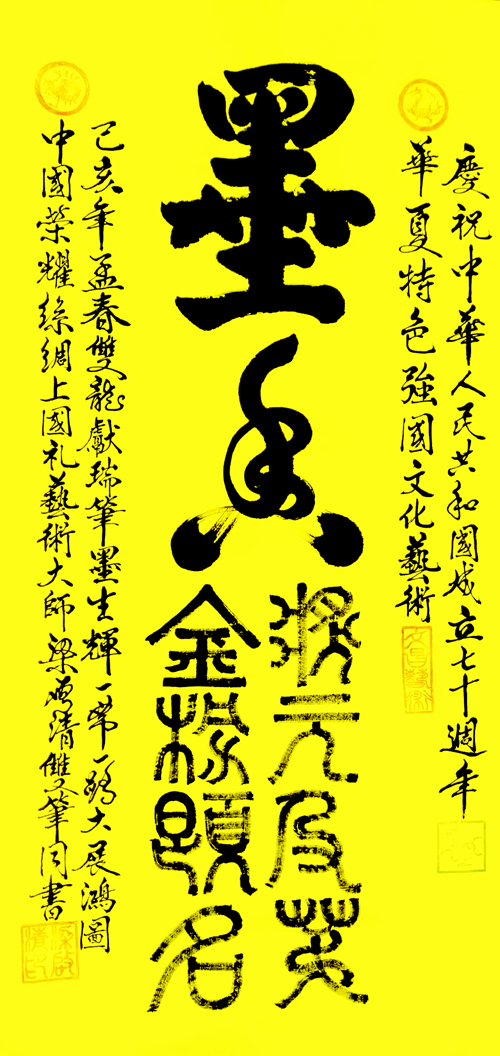 慶祝中華人民共和國成立七十週年
華夏特色強國文化藝術
墨香
狀元及英
金榜題名
己亥年孟春雙龍獻瑞筆墨生輝一帶一路大展鴻圖
中國榮耀絲綢上國礼藝術大師梁啟清雙筆同書
梁啟清印